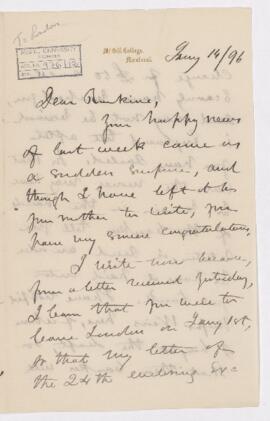 To London
McGILL UNIVERSITY
ARCHIVES
McGill College,
Montreal.
Jany 14/96
Dear Rankine,
Your happy news
of last week came as
a sudden surprise, and
though I have left it to
your mother to write, you
have my sincere congratulations.
I write now because,
from a letter received yesterday,
I learn that you were to
leave London on Jany 1st,
so that my letter of
the 24th enclosing Exc